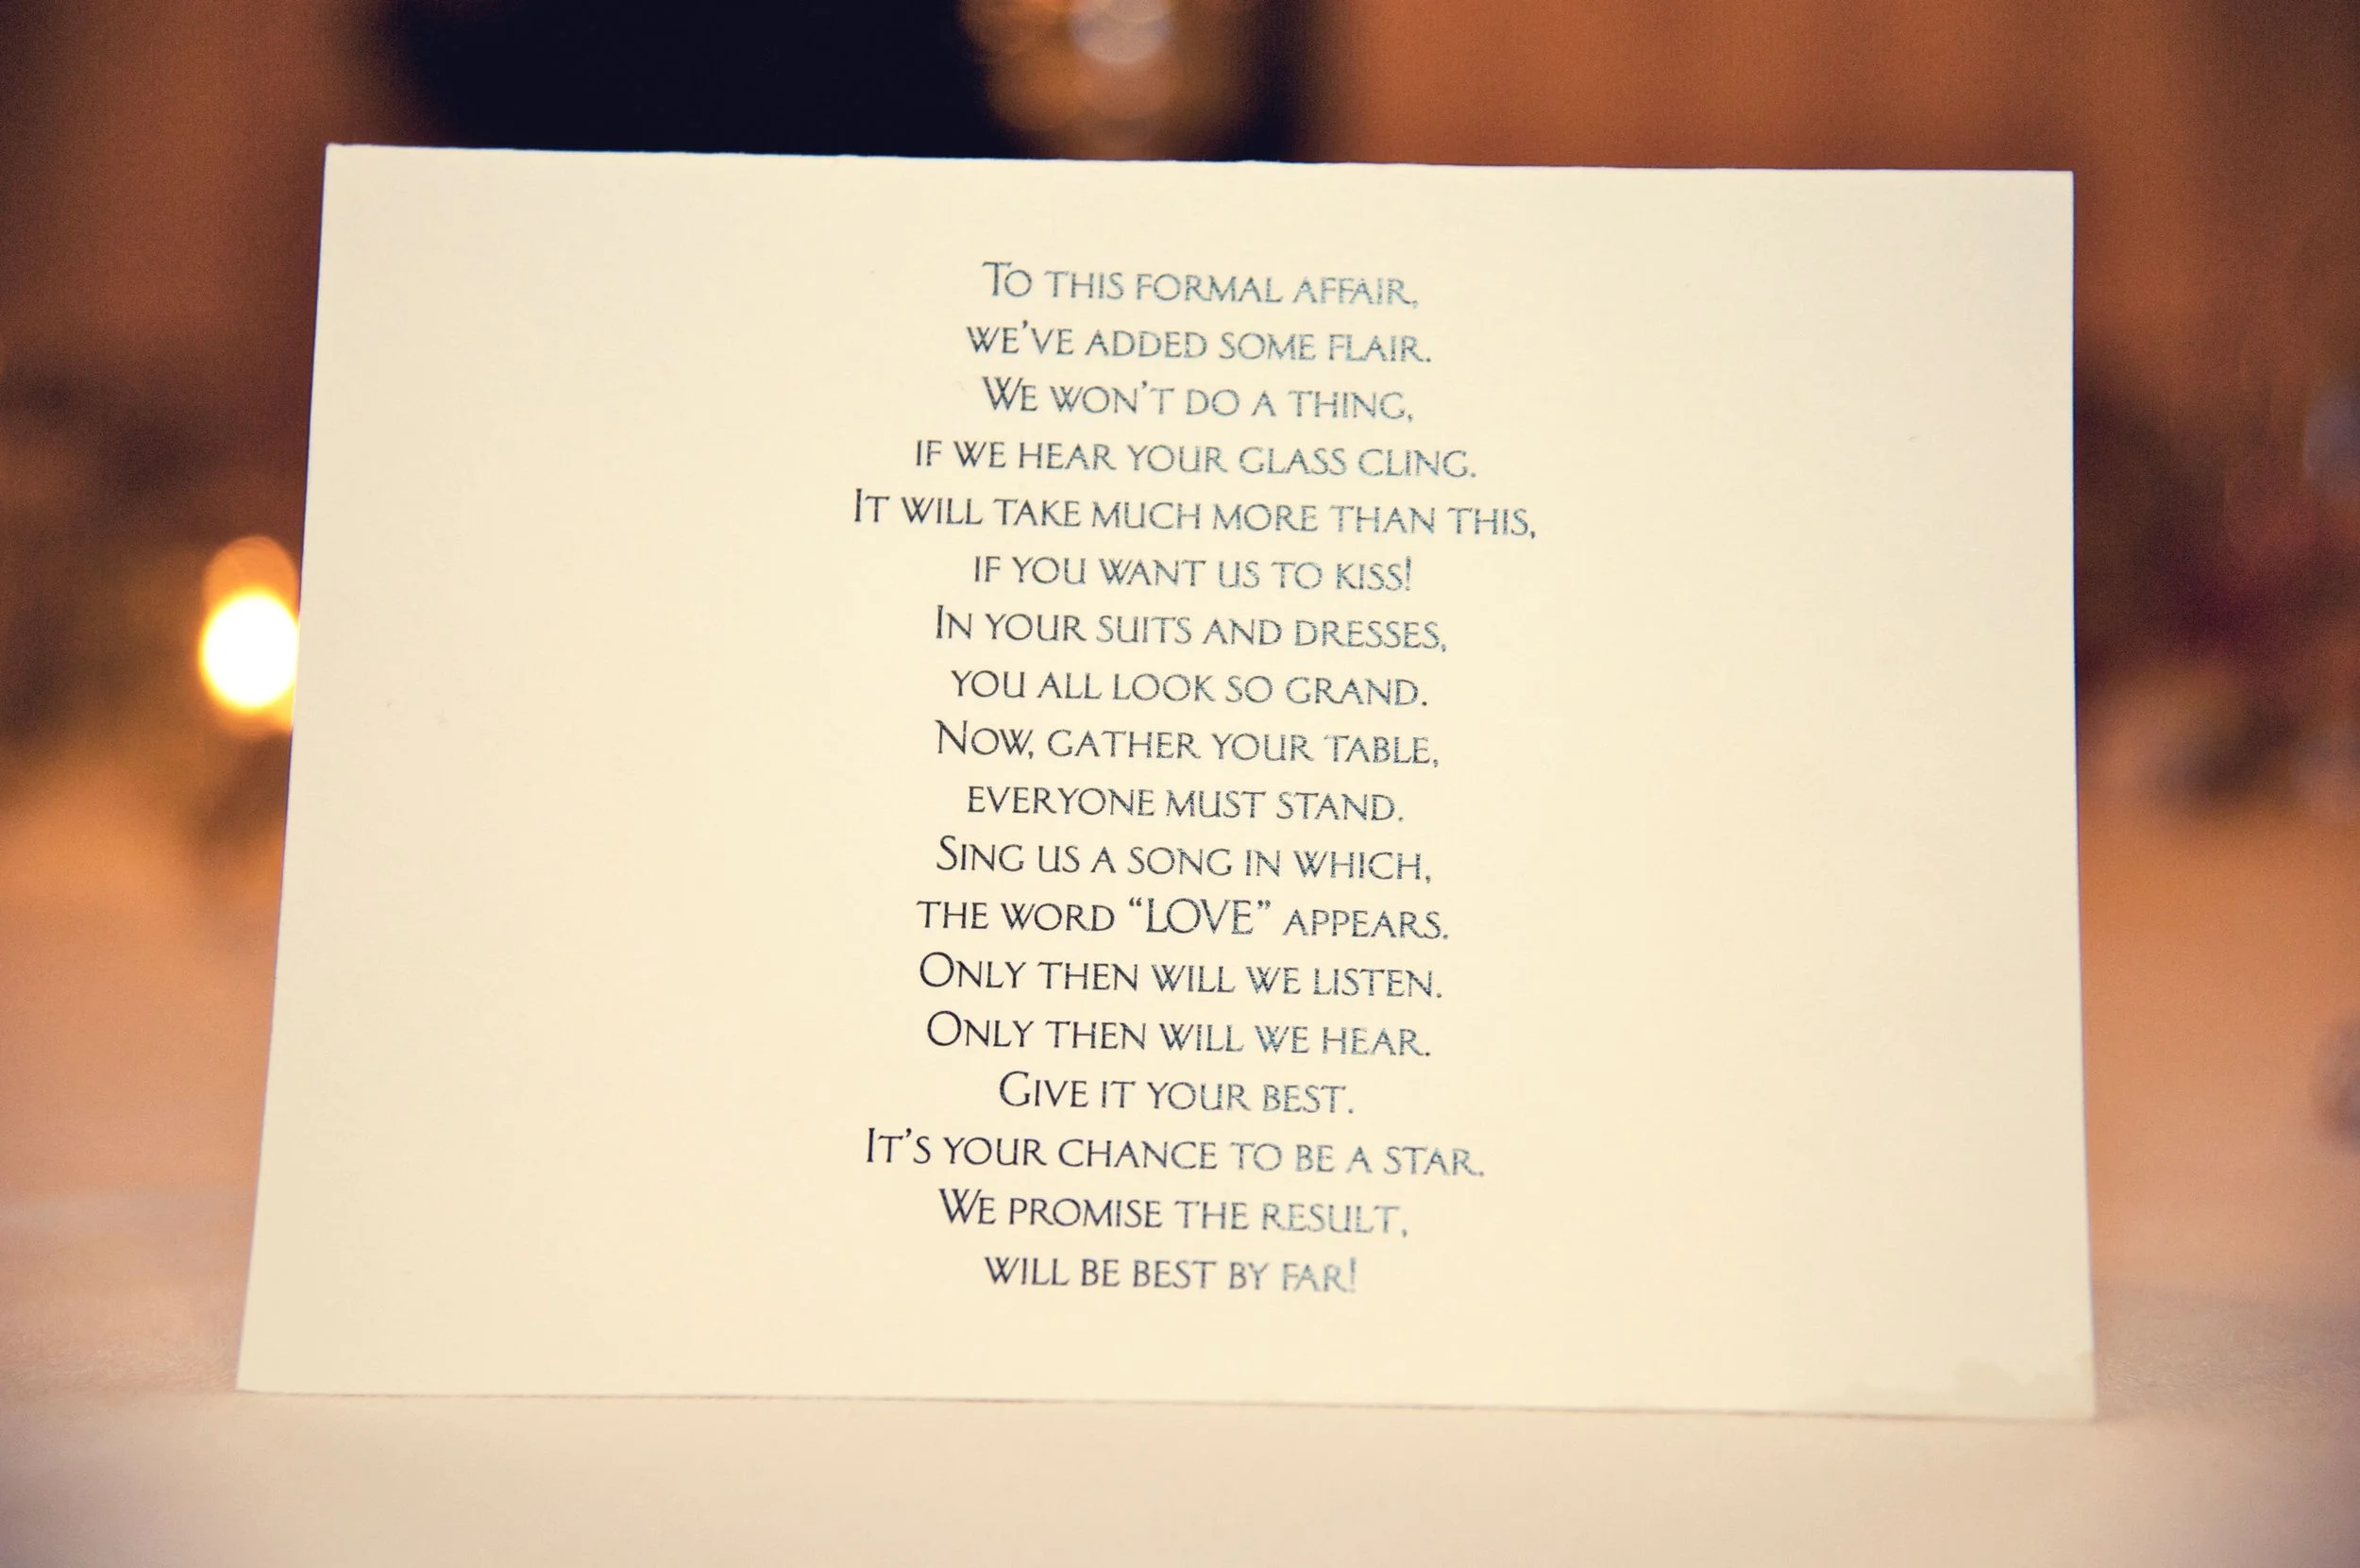 To this formal affair,
we've added some flair.
We won't do a thing,
if we hear your glass cling.
It will take much more than this,
if you want us to kiss!
In your suits and dresses,
you all look so grand.
Now, gather your table,
everyone must stand.
Sing us a song in which,
the word “LOVE” appears.
Only then will we listen.
Only then will we hear.
Give it your best.
It's your chance to be a star.
We promise the result,
will be best by far!